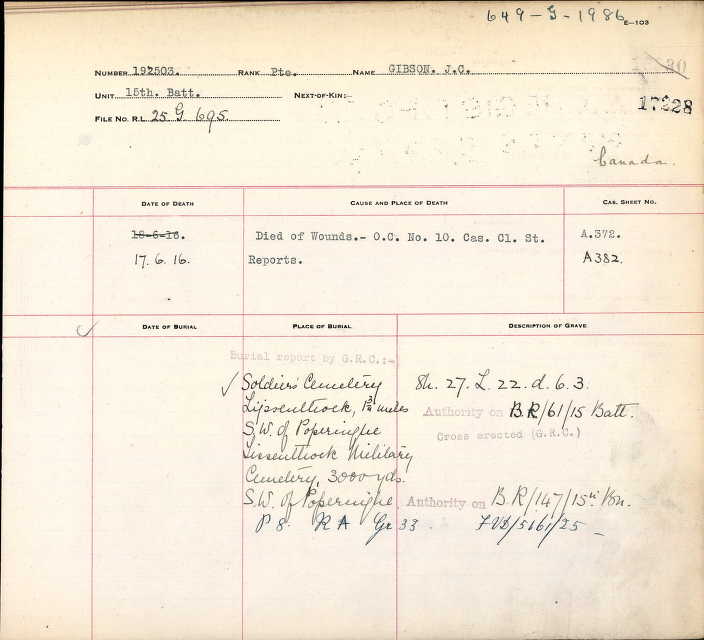 649-G-1986 E-103
NUMBER 192503. RANK Pte. NAME GIBSON. J.C.
UNIT 15th. Batt. NEXT-OF-KIN:-
17228
FILE NO. R.L. 25 G 695.
Canada.
DATE OF DEATH CAUSE AND PLACE OF DEATH CAS. SHEET NO.
18-6-16. Died of Wounds.- O.C. No. 10. Cas. Cl. St. A.372.
17.6.16. Reports. A382.
DATE OF BURIAL PLACE OF BURIAL DESCRIPTION OF GRAVE
Burial report by G.R.C.:-
✓ Soldiers' Cemetery Sh. 27. L. 22. d. 6. 3.
Lijssenthoek, 1¾ miles Authority on B.R/61/15 Batt.
S.W. of Poperinghe Cross erected (G.R.C.)
Lissenthoek Military
Cemetery, 3000 yds.
S.W. of Poperinghe. Authority on B.R/147/15th Bn.
P 8. R A Gr 33. 7VD/5161/25 -